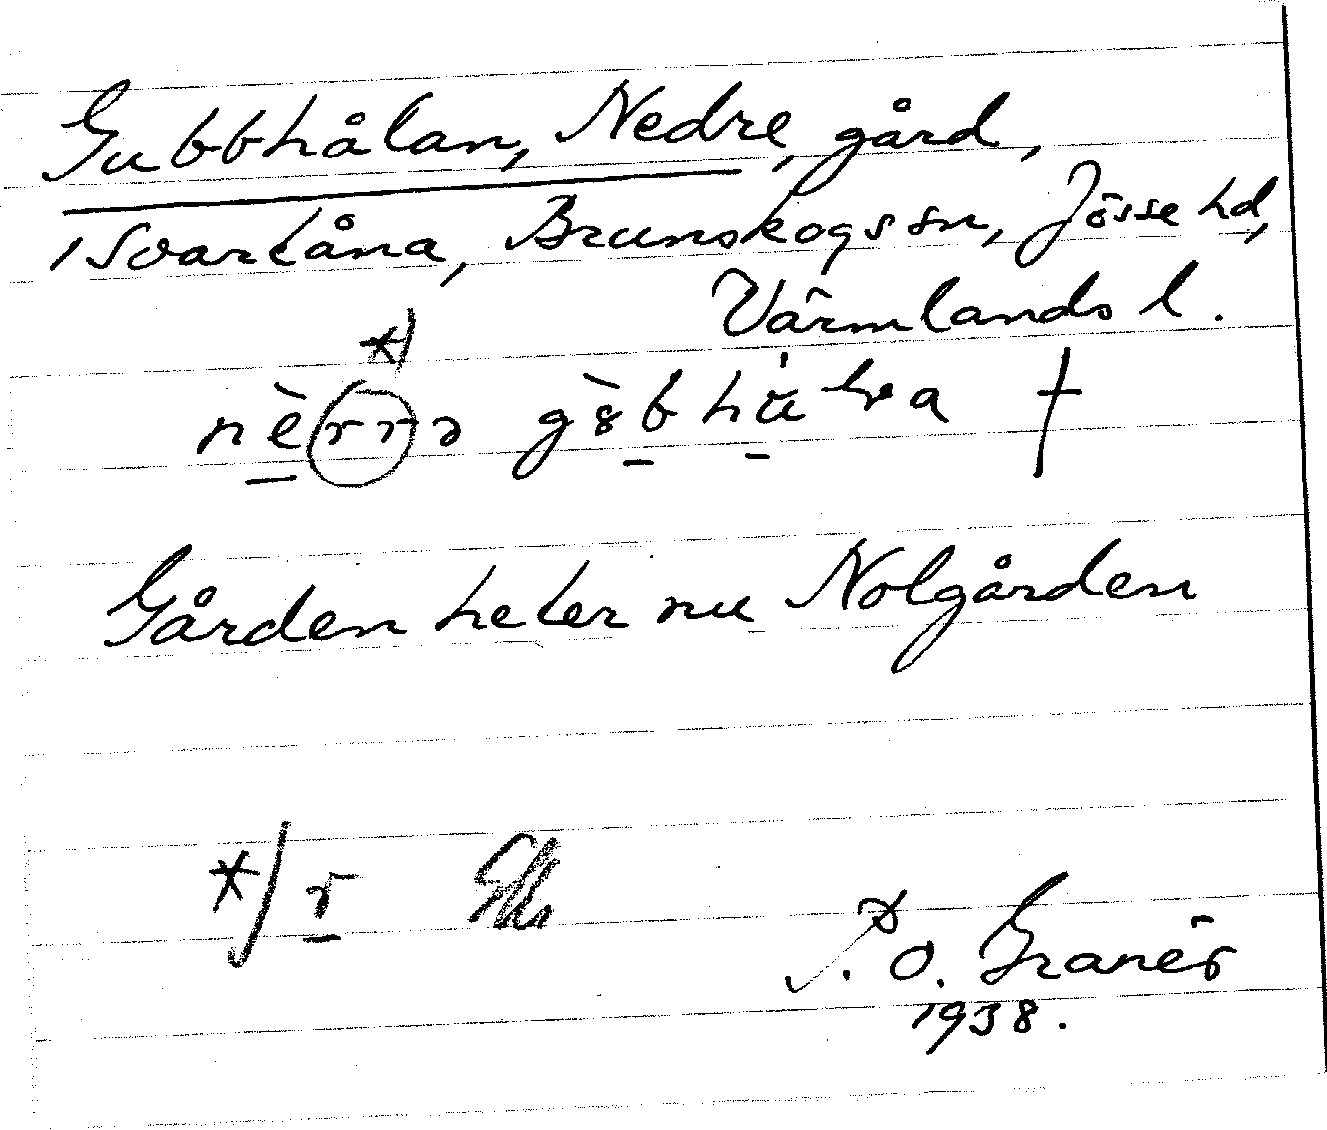 Gubbhålan, Nedre, gård,
i Svartåna, Brunskogs sn, Jösse hd,
Värmlands l.
*)
Gården heter nu Nolgården
*) r
P. O. Granér
1938.